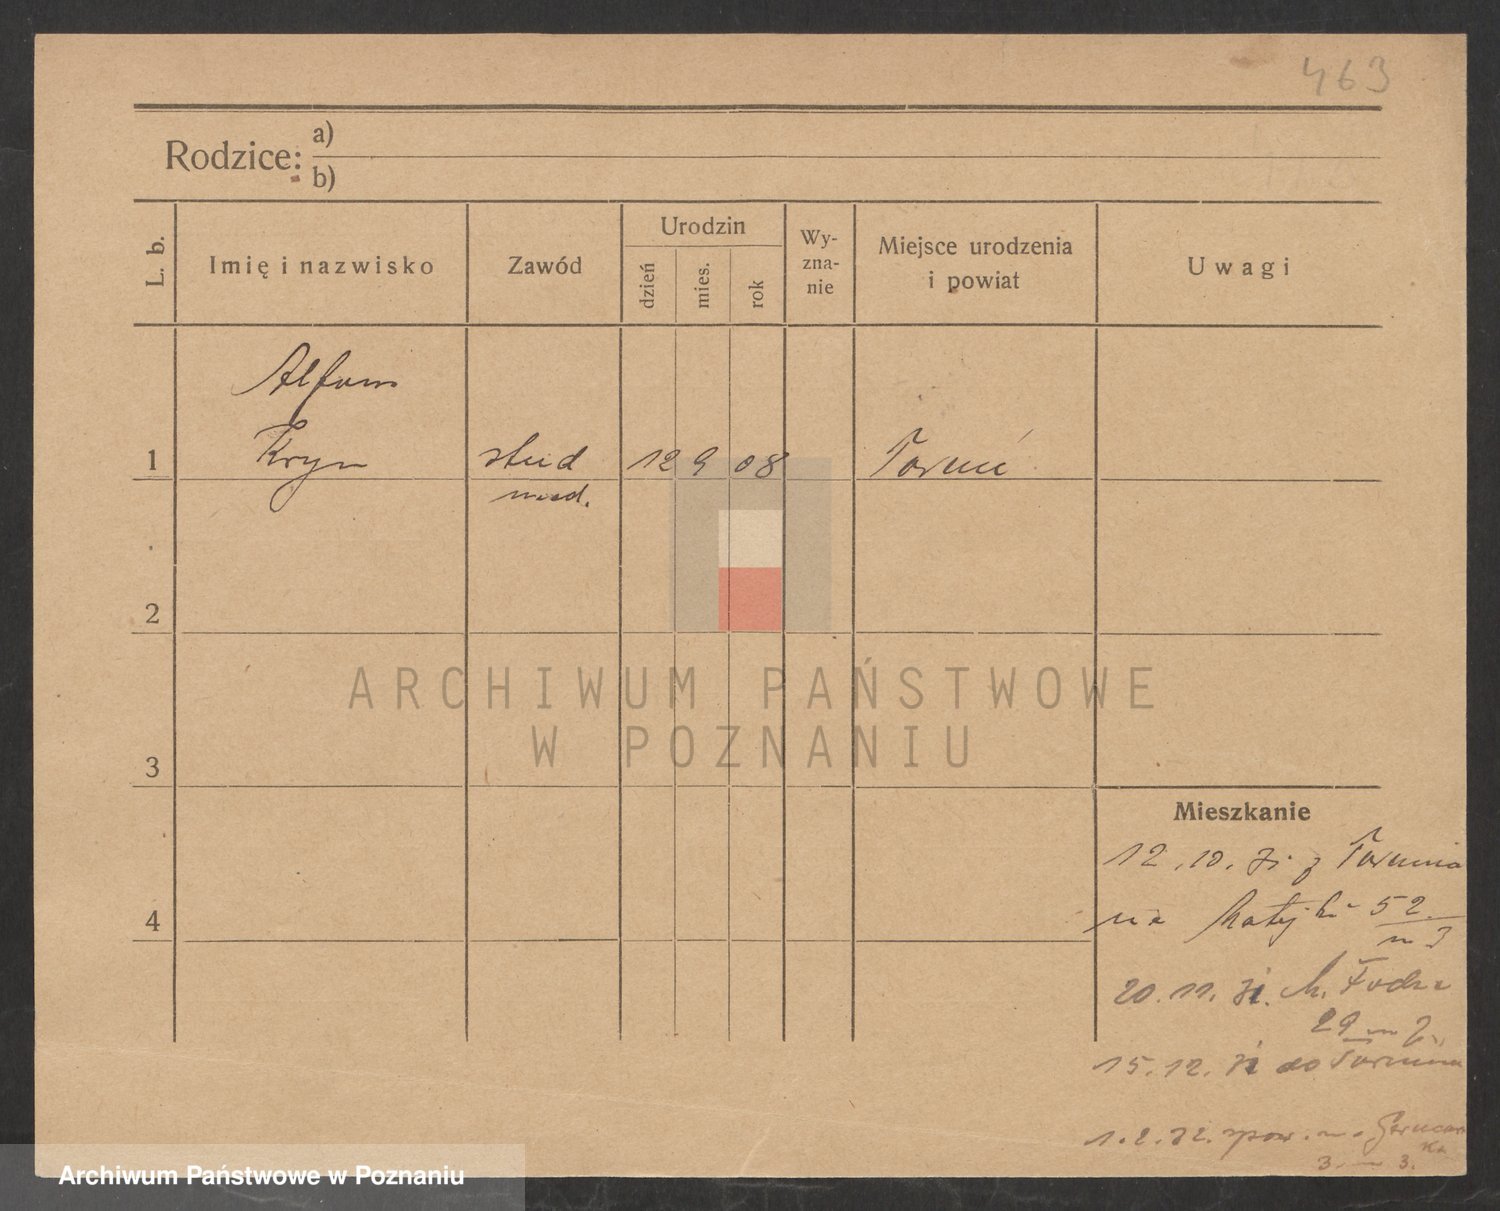 463
Rodzice: a)
b)
L. b.
Imię i nazwisko
Zawód
Urodzin
dzień
mies.
rok
Wy-
zna-
nie
Miejsce urodzenia
i powiat
Uwagi
Alfons
1 Kryn stud 12 9 08 Toruń
med.
2
ARCHIWUM PAŃSTWOWE
W POZNANIU
3
Mieszkanie
12.10. 31 z Torunia
na Matejki 52
m 3
4
20.11. 31. M. Focha
29 m 2.
15.12. 31 do Torunia
1.2.32. spow. na
3 m 3.
Archiwum Państwowe w Poznaniu